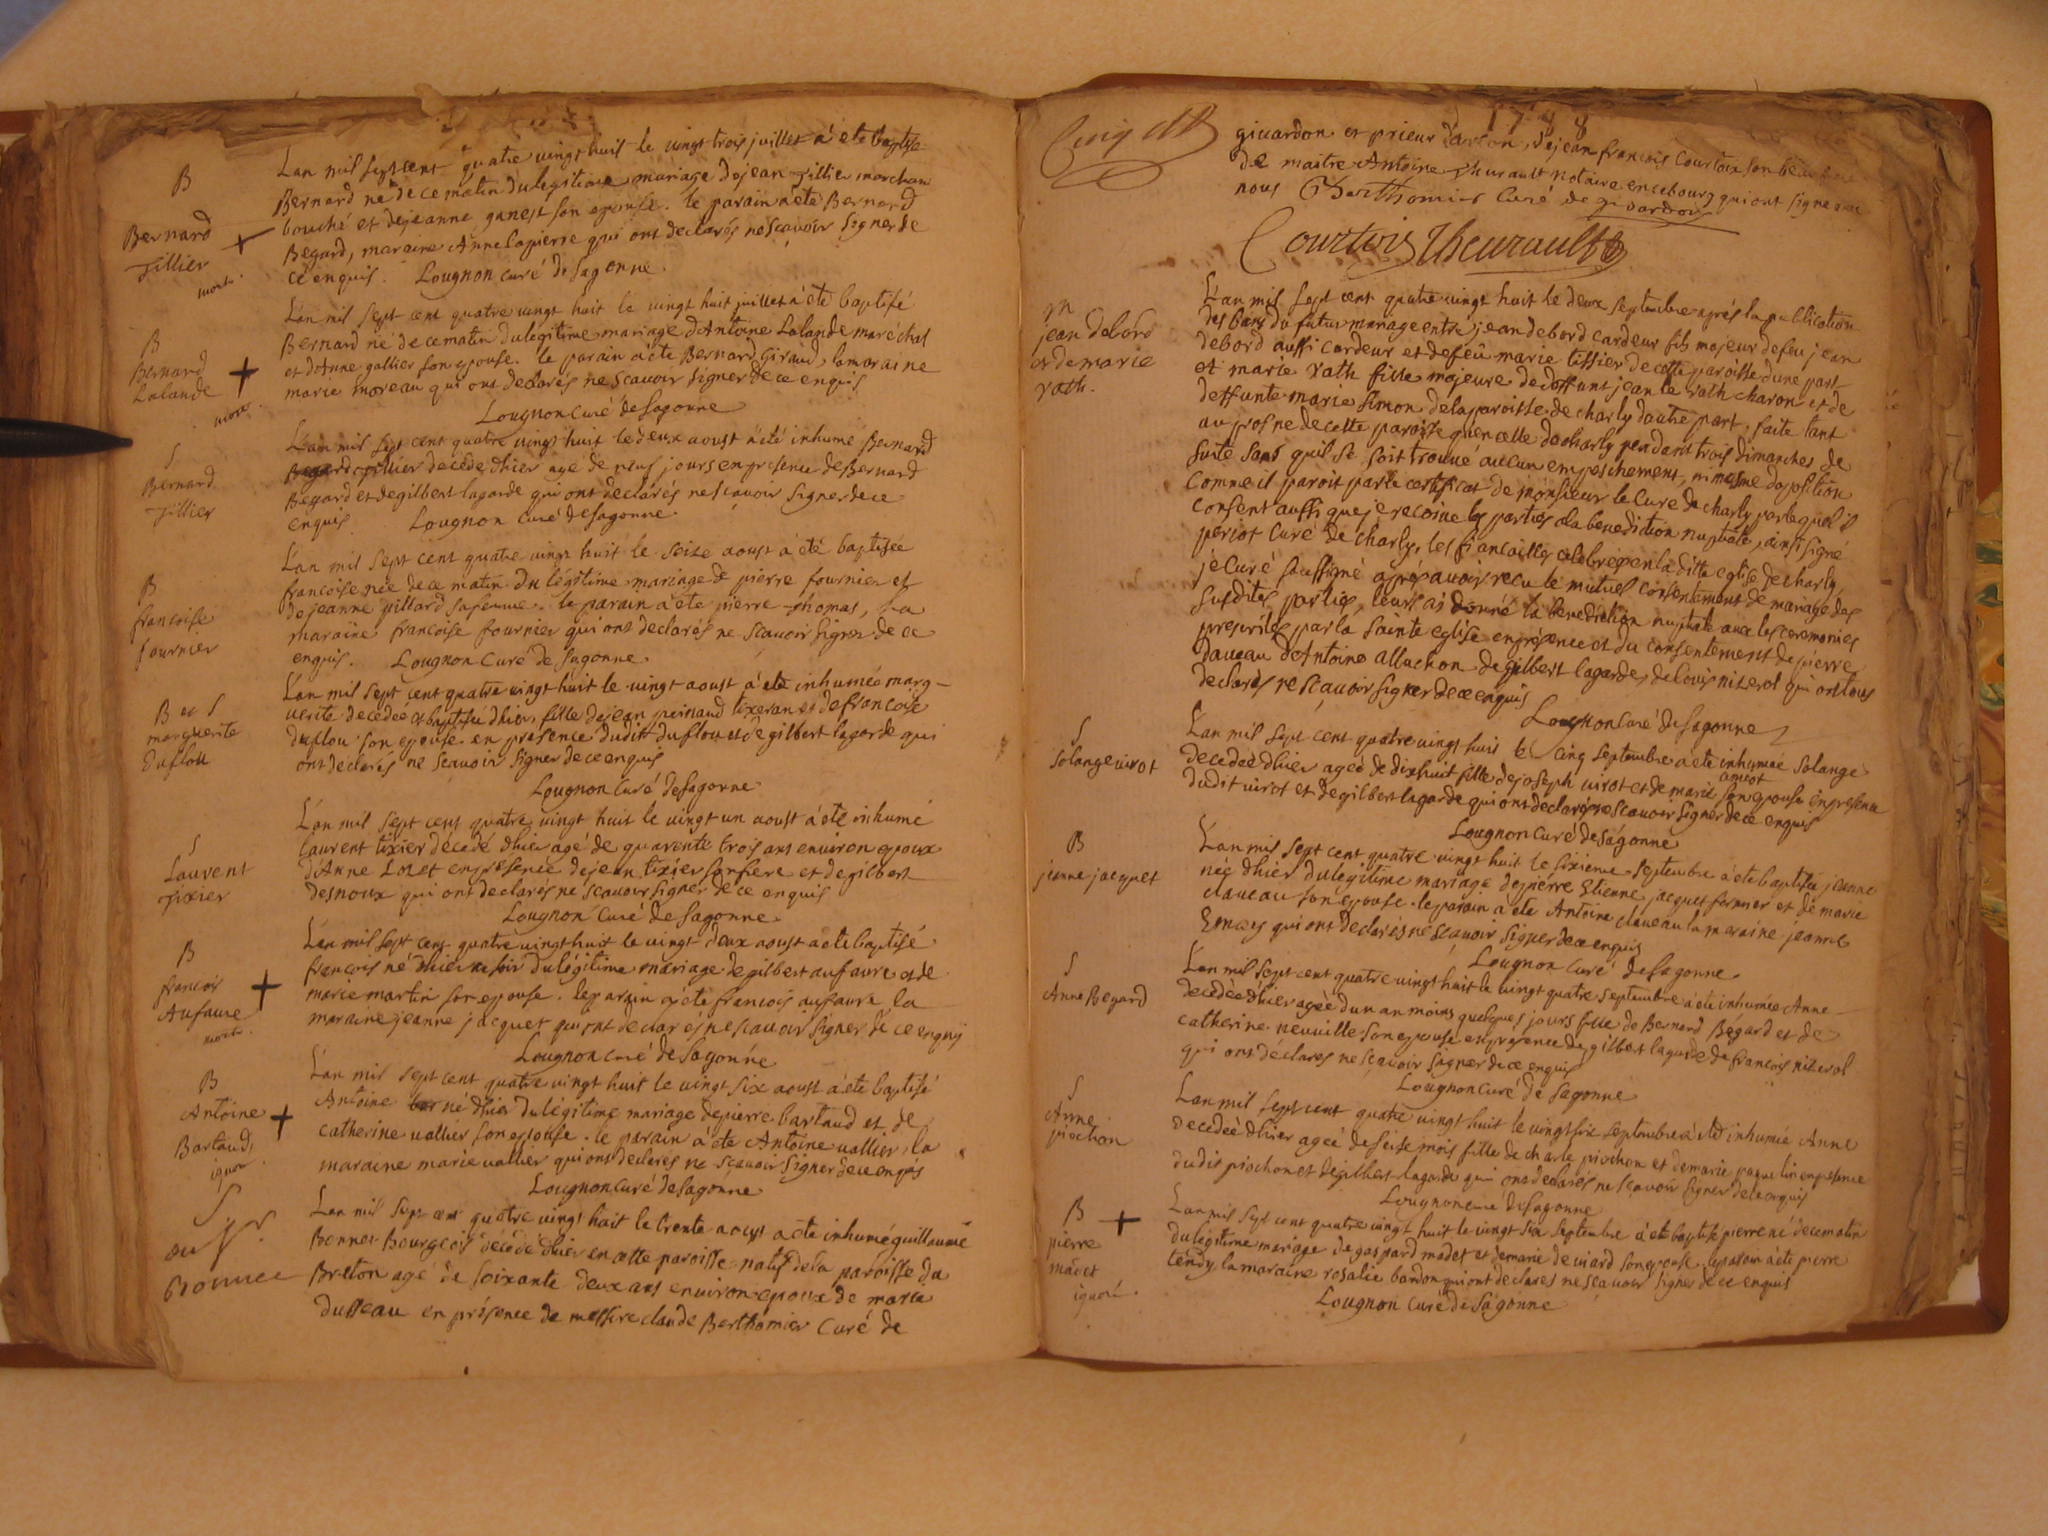 B
Bernard
Tillier
mort.
Lan mil sept cent quatre vingt huit le vingt trois juillet à ete baptise
Bernard né de ce matin du legitime mariage de jean Tillier marchan
bouché et de jeanne ganest son epouse. le parain a ete Bernard
Begard, maraine Anne lapierre qui ont declarés ne scavoir signer de
ce enquis. Lougnon curé de Sagonne.
B
Bernard
Lalande
mort.
L'an mil sept cent quatre vingt huit le vingt huit juillet à ete baptisé
Bernard né de ce matin du legitime mariage d'Antoine Lalande maréchal
et d'Anne gallier son epouse. le parain a ete Bernard Giraud, la maraine
marie moreau qui ont declarés ne scavoir signer de ce enquis
Lougnon Curé de Sagonne
S
Bernard
Tillier
L'an mil sept cent quatre vingt huit le deux aoust à été inhumé Bernard
tillier decedé d'hier agé de neuf jours en presence de Bernard
Begard et de gilbert lagarde qui ont declarés ne scavoir signer de ce
enquis. Lougnon curé de Sagonne.
B
francoise
fournier
L'an mil sept cent quatre vingt huit le seize aoust à été baptisée
francoise née de ce matin du légitime mariage de pierre fournier et
de jeanne pillard sa femme. le parain a ete pierre thomas, la
maraine francoise fournier qui ont declarés ne scavoir signer de ce
enquis. Lougnon Curé de Sagonne.
B et S
marguerite
Duflou
L'an mil sept cent quatre vingt huit le vingt aoust à ete inhumée marg-
uerite decedée et baptisée d'hier, fille de jean tixeran et de francoise
duflou son epouse. en presence dudit duflou et de gilbert lagarde qui
ont declarés ne scavoir signer de ce enquis
Lougnon Curé de Sagonne
S
Laurent
Tixier
L'an mil sept cent quatre vingt huit le vingt un aoust à ete inhumé
Laurent tixier décedé d'hier agé de quarente trois ans environ epoux
d'Anne Loret en presence de jean tixier son frere et de gilbert
desnoux qui ont declarés ne scavoir signer de ce enquis
Lougnon Curé de Sagonne.
B
francois
Aufaure
mort.
L'an mil sept cent quatre vingt huit le vingt deux aoust a ete baptisé
francois né d'hier au soir du légitime mariage de gilbert aufaure et de
marie martin son epouse. le parain a ete francois aufaure la
maraine jeanne jacquet qui ont declarés ne scavoir signer de ce enquis
Lougnon curé de Sagonne
B
Antoine
Bartaud
ignor.
L'an mil sept cent quatre vingt huit le vingt six aoust à ete baptisé
Antoine né d'hier du légitime mariage de pierre bartaud et de
catherine vallier son epouse. le parain à ete Antoine vallier, la
maraine marie vallier qui ont declarés ne scavoir signer de ce enquis
Lougnon curé de Sagonne
S
Bonnet
Lan mil sept cent quatre vingt huit le trente aoust a ete inhumé guillaume
Bonnet Bourgeois decedé d'hier en cette paroisse natif de la paroisse du
Breton agé de soixante deux ans environ epoux de marie
dusseau en présence de messire claude Berthomier Curé de
1788
givardon et prieur, de jean francois Courtois son beau frere
de maitre Antoine Theurault notaire en ce bourg qui ont signe avec
nous Berthomier Curé de givardon
Courtois Theurault
M
jean debord
et de marie
rath.
L'an mil sept cent quatre vingt huit le deux septembre après la publication
des bans du futur mariage entre jean debord cardeur fils majeur de feu jean
debord aussi cardeur et de feu marie tissier de cette paroisse d'une part
et marie rath fille majeure de deffunt jean le rath charon et de
deffunte marie simon de la paroisse de charly d'autre part. faite tant
au prosne de cette paroisse qu'en celle de charly pendant trois dimanches de
suite sans quil se soit trouvé aucun empeschement, ni mesme doposition
comme il paroit par le certificat de monsieur le Curé de charly par lequel il
consent aussi que je recoive les parties a la benediction nuptiale, ainsi signé
periot Curé de charly, les fiancailles celebrées en la ditte eglise de charly,
je Curé soussigné après avoir recu le mutuel consentement de mariage des
susdites parties, leurs ai donné la benediction nuptiale avec les ceremonies
prescrites par la sainte eglise en presence et du consentement de pierre
daveau d'Antoine alluchon de gilbert lagarde, de louis nizerol qui ont tous
declarés ne scavoir signer de ce enquis
Lougnon Curé de Sagonne
S
Solange virot
L'an mil sept cent quatre vingt huit le cinq septembre a ete inhumée Solange
decedée d'hier agée de dixhuit fille de joseph virot et de marie amiot son epouse en presence
dudit virot et de gilbert lagarde qui ont declarés ne scavoir signer de ce enquis
Lougnon Curé de Sagonne
B
jeanne jacquet
L'an mil sept cent quatre vingt huit le sixieme septembre a ete baptisée jeanne
née d'hier du legitime mariage de pierre Etienne jacquet fermier et de marie
claveau son epouse. le parain a ete Antoine claveau la maraine jeanne
qui ont declarés ne scavoir signer de ce enquis
Lougnon Curé de Sagonne.
S
Anne Begard
L'an mil sept cent quatre vingt huit le vingt quatre septembre à ete inhumée Anne
decedée d'hier agée d'un an moins quelques jours fille de Bernard Begard et de
catherine neuville son epouse en presence de gilbert lagarde de francois nizerol
qui ont déclarés ne scavoir signer de ce enquis
Lougnon Curé de Sagonne
S
Anne
piochon
L'an mil sept cent quatre vingt huit le vingt six septembre à ete inhumée Anne
decedée d'hier agée de seize mois fille de charle piochon et de marie paquelin en presence
dudit piochon et de gilbert lagarde qui ont declarés ne scavoir signer de ce enquis
Lougnon curé de Sagonne
B
pierre
madet
ignoré.
L'an mil sept cent quatre vingt huit le vingt six septembre à ete baptisé pierre né de ce matin
du légitime mariage de gaspard madet et de marie deviard son epouse. le parain a ete pierre
tendy, la maraine rosalie bardon qui ont declares ne scavoir signer de ce enquis
Lougnon Curé de Sagonne